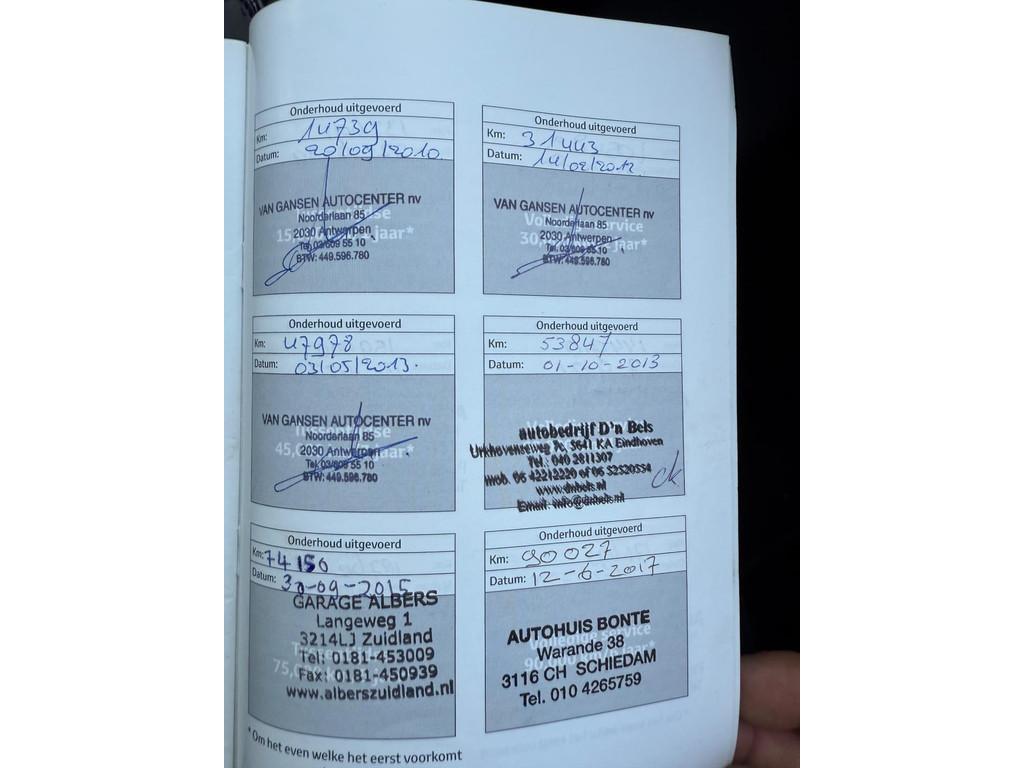 Onderhoud uitgevoerd
Km: 14739
Datum: 20/09/2010.
VAN GANSEN AUTOCENTER nv
Noorderlaan 85
2030 Antwerpen
Tel. 03/609 55 10
BTW: 449.596.780
Onderhoud uitgevoerd
Km: 31443
Datum: 14/02/2012.
VAN GANSEN AUTOCENTER nv
Noorderlaan 85
2030 Antwerpen
Tel. 03/609 55 10
BTW: 449.596.780
Onderhoud uitgevoerd
Km: 47978
Datum: 03/05/2013.
VAN GANSEN AUTOCENTER nv
Noorderlaan 85
2030 Antwerpen
Tel. 03/609 55 10
BTW: 449.596.780
Onderhoud uitgevoerd
Km: 53847
Datum: 01-10-2013
autobedrijf D'n Bels
5641 KA Eindhoven
Tel.: 040 2811307
mob. 06 42212220 of 06 52520554
www.dnbels.nl
Email: info@dnbels.nl
Onderhoud uitgevoerd
Km: 74150
Datum: 30-09-2015
GARAGE ALBERS
Langeweg 1
3214LJ Zuidland
Tel: 0181-453009
Fax: 0181-450939
www.alberszuidland.nl
Onderhoud uitgevoerd
Km: 90027
Datum: 12-6-2017
Volledige service
AUTOHUIS BONTE
Warande 38
3116 CH SCHIEDAM
Tel. 010 4265759
* Om het even welke het eerst voorkomt